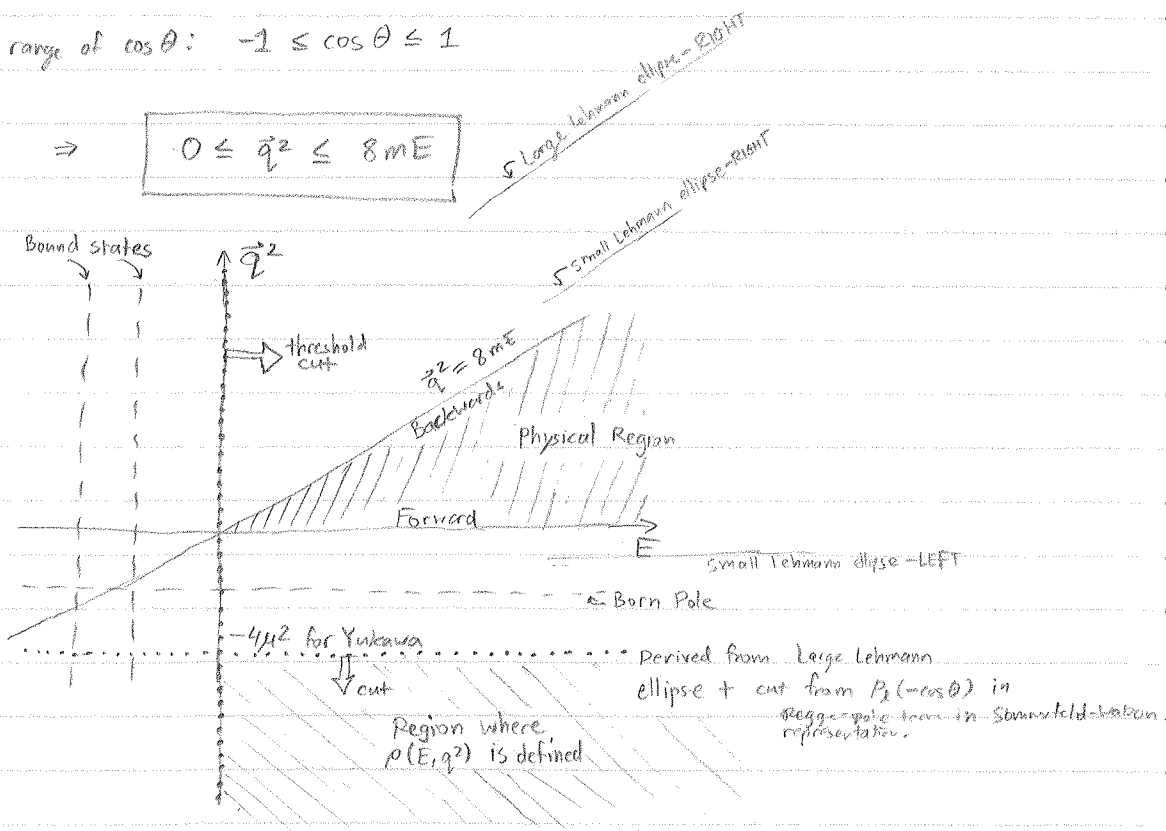 range of cos θ: -1 ≤ cos θ ≤ 1
⇒ 0 ≤ q⃗² ≤ 8mE
Large Lehmann ellipse-RIGHT
Small Lehmann ellipse-RIGHT
Bound states
q⃗²
threshold
cut
q⃗² = 8mE
Backwards
Physical Region
Forward
E
Small Lehmann ellipse-LEFT
← Born Pole
-4μ² for Yukawa
cut
Derived from Large Lehmann
ellipse + cut from Pℓ(-cosθ) in
Regge-pole term in Sommerfeld-Watson
representation.
Region where
ρ(E,q²) is defined